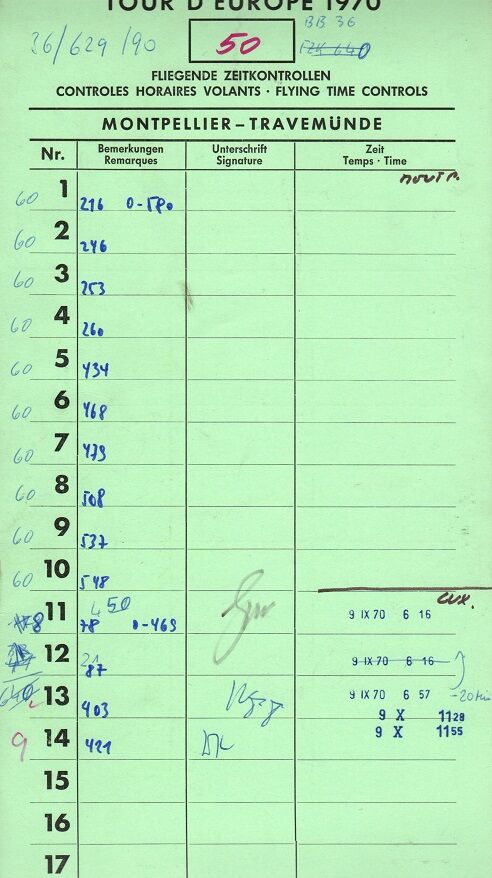 TOUR D'EUROPE 1970
36/629/90 50 BB 36
640
FLIEGENDE ZEITKONTROLLEN
CONTROLES HORAIRES VOLANTS · FLYING TIME CONTROLS
MONTPELLIER – TRAVEMÜNDE
Nr. Bemerkungen Remarques Unterschrift Signature Zeit Temps · Time
60 1 216 0-580
60 2 246
60 3 253
60 4 260
60 5 434
60 6 468
60 7 473
60 8 508
60 9 537
60 10 548
LUX.
450
8 11 78 0-463 9 IX 70 6 16
12 87 9 IX 70 6 16
640 13 403 9 IX 70 6 57 -20 Min
9 X 11 28
9 14 421 9 X 11 55
15
16
17